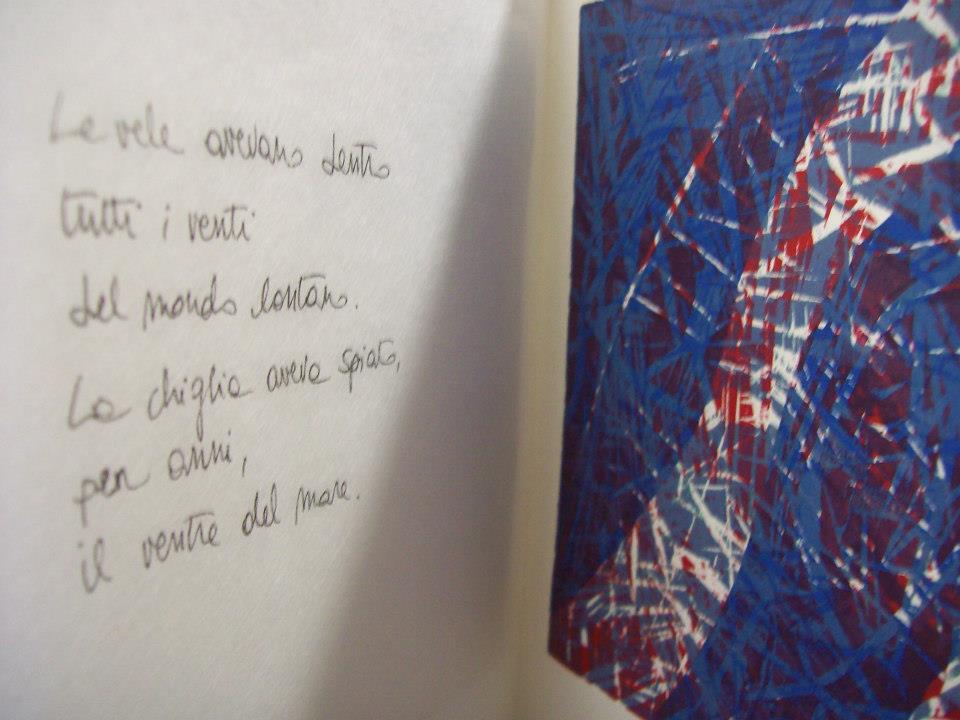 Le vele avevano dentro
tutti i venti
del mondo lontano.
La chiglia aveva spiato,
per anni,
il ventre del mare.